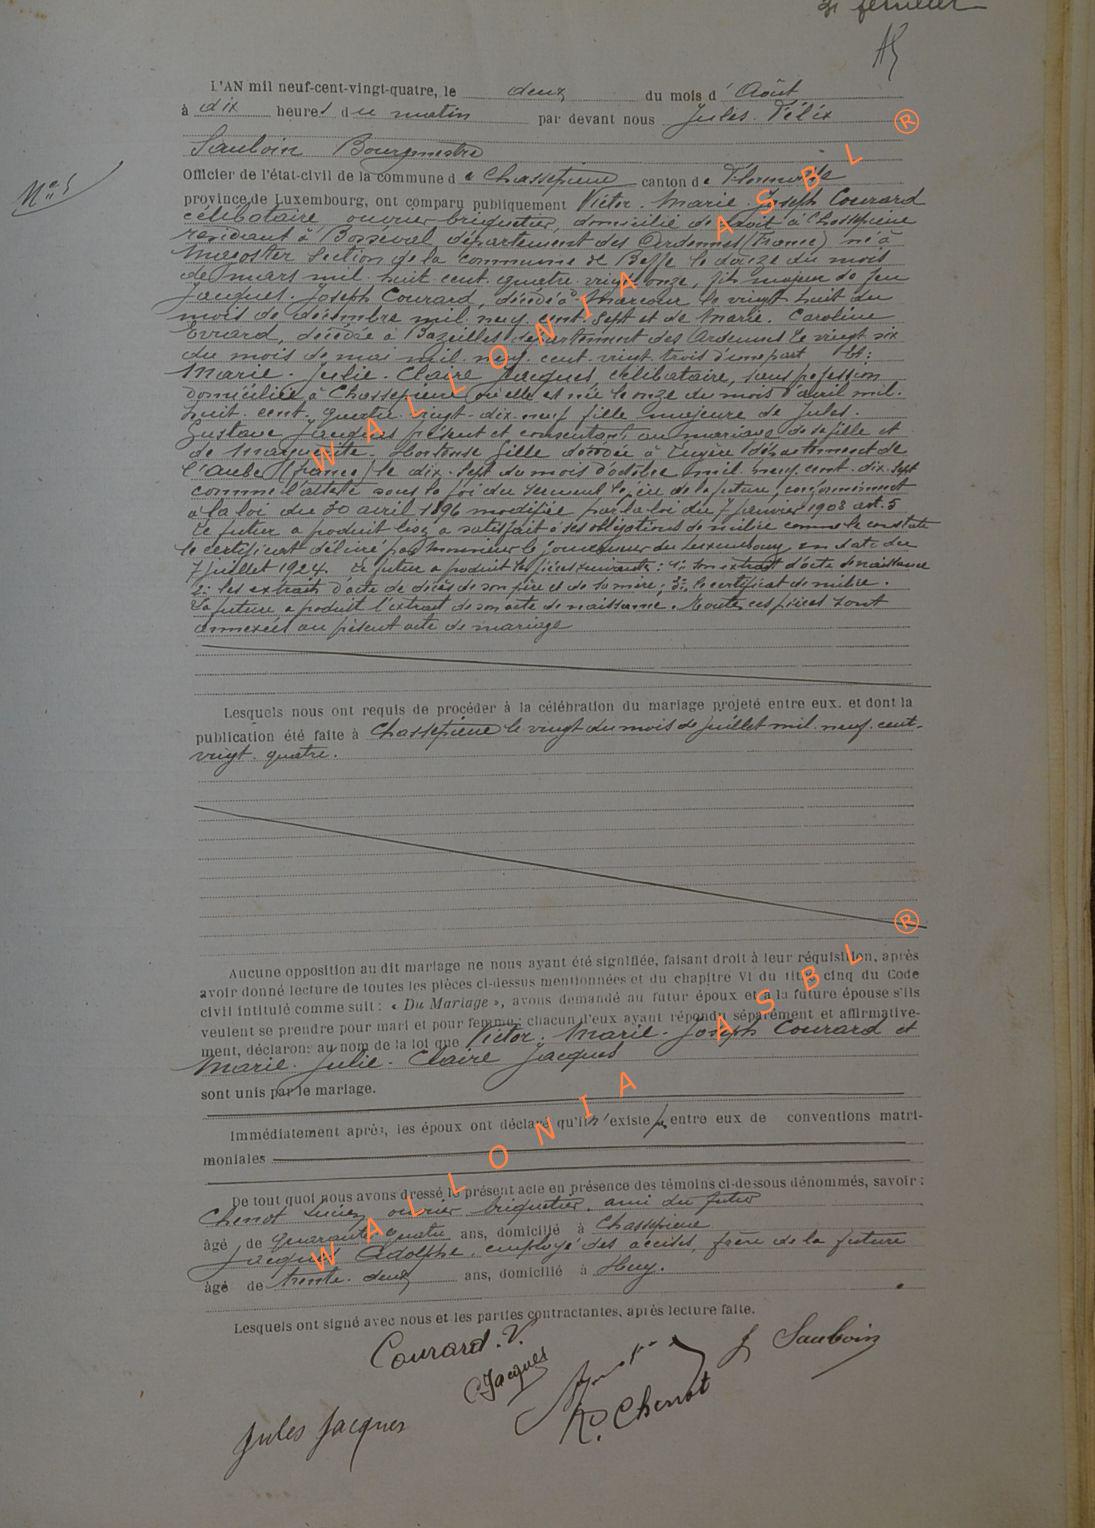 N° 5
L'AN mil neuf-cent-vingt-quatre, le deux du mois d'Août
à dix heures du matin par devant nous Jules Félix
Sauboin Bourgmestre
Officier de l'état-civil de la commune de Chassepierre canton de Florenville
province de Luxembourg, ont comparu publiquement Victor-Marie-Joseph Courard
célibataire, ouvrier briquetier, domicilié de droit à Chassepierre
résidant à Bosséval, département des Ardennes (France) né à
Magoster section de la commune de Beffe le douze du mois
de mars mil huit cent quatre vingt onze, fils majeur de feu
Jacques-Joseph Courard, décédé à Marcour le vingt huit du
mois de décembre mil neuf cent sept et de Marie-Caroline
Evrard, décédée à Bazeilles département des Ardennes le vingt six
du mois de mai mil neuf cent vingt trois d'une part Et:
Marie-Julie-Claire Jacques, célibataire, sans profession
domiciliée à Chassepierre où elle est née le onze du mois d'avril mil
huit cent quatre vingt-dix-neuf fille majeure de Jules-
Gustave Jacques présent et consentant au mariage de sa fille et
de Marguerite-Hortense Gille décédée à département de
l'Aube (france) le dix-sept du mois d'octobre mil neuf cent dix-sept
comme l'atteste sous la foi du serment le père de la future, conformément
à la loi du 30 avril 1896 modifiée par la loi du 7 janvier 1908 art. 5
Le futur a produit a satisfait à ses obligations de milice comme le constate
le certificat délivré par Monsieur le gouverneur du Luxembourg en date du
7 juillet 1924. Le futur a produit les pièces suivantes: 1° son extrait d'acte de naissance
2° les extraits d'acte de décès de son père et de sa mère; 3° le certificat de milice.
La future a produit l'extrait de son acte de naissance. Toutes ces pièces sont
annexées au présent acte de mariage
Lesquels nous ont requis de procéder à la célébration du mariage projeté entre eux, et dont la
publication été faite à Chassepierre le vingt du mois de juillet mil neuf cent-
vingt quatre.
Aucune opposition au dit mariage ne nous ayant été signifiée, faisant droit à leur réquisition, après
avoir donné lecture de toutes les pièces ci-dessus mentionnées et du chapitre VI du titre cinq du Code
civil intitulé comme suit: « Du Mariage », avons demandé au futur époux et à la future épouse s'ils
veulent se prendre pour mari et pour femme; chacun d'eux ayant répondu séparément et affirmative-
ment, déclarons au nom de la loi que Victor-Marie-Joseph Courard et
Marie-Julie-Claire Jacques
sont unis par le mariage.
Immédiatement après, les époux ont déclaré qu'il n'existe pas entre eux de conventions matri-
moniales
De tout quoi nous avons dressé le présent acte en présence des témoins ci-dessous dénommés, savoir:
Chenot Lucien, ouvrier briquetier, ami du futur
âgé de quarante quatre ans, domicilié à Chassepierre
Jacques Adolphe, employé des accises, frère de la future
âgé de trente-deux ans, domicilié à Huy.
Lesquels ont signé avec nous et les parties contractantes, après lecture faite.
Courard. V.
C. Jacques
J Sauboin
Chenot
Jules Jacques
WALLONIA ASBL ®
WALLONIA ASBL ®